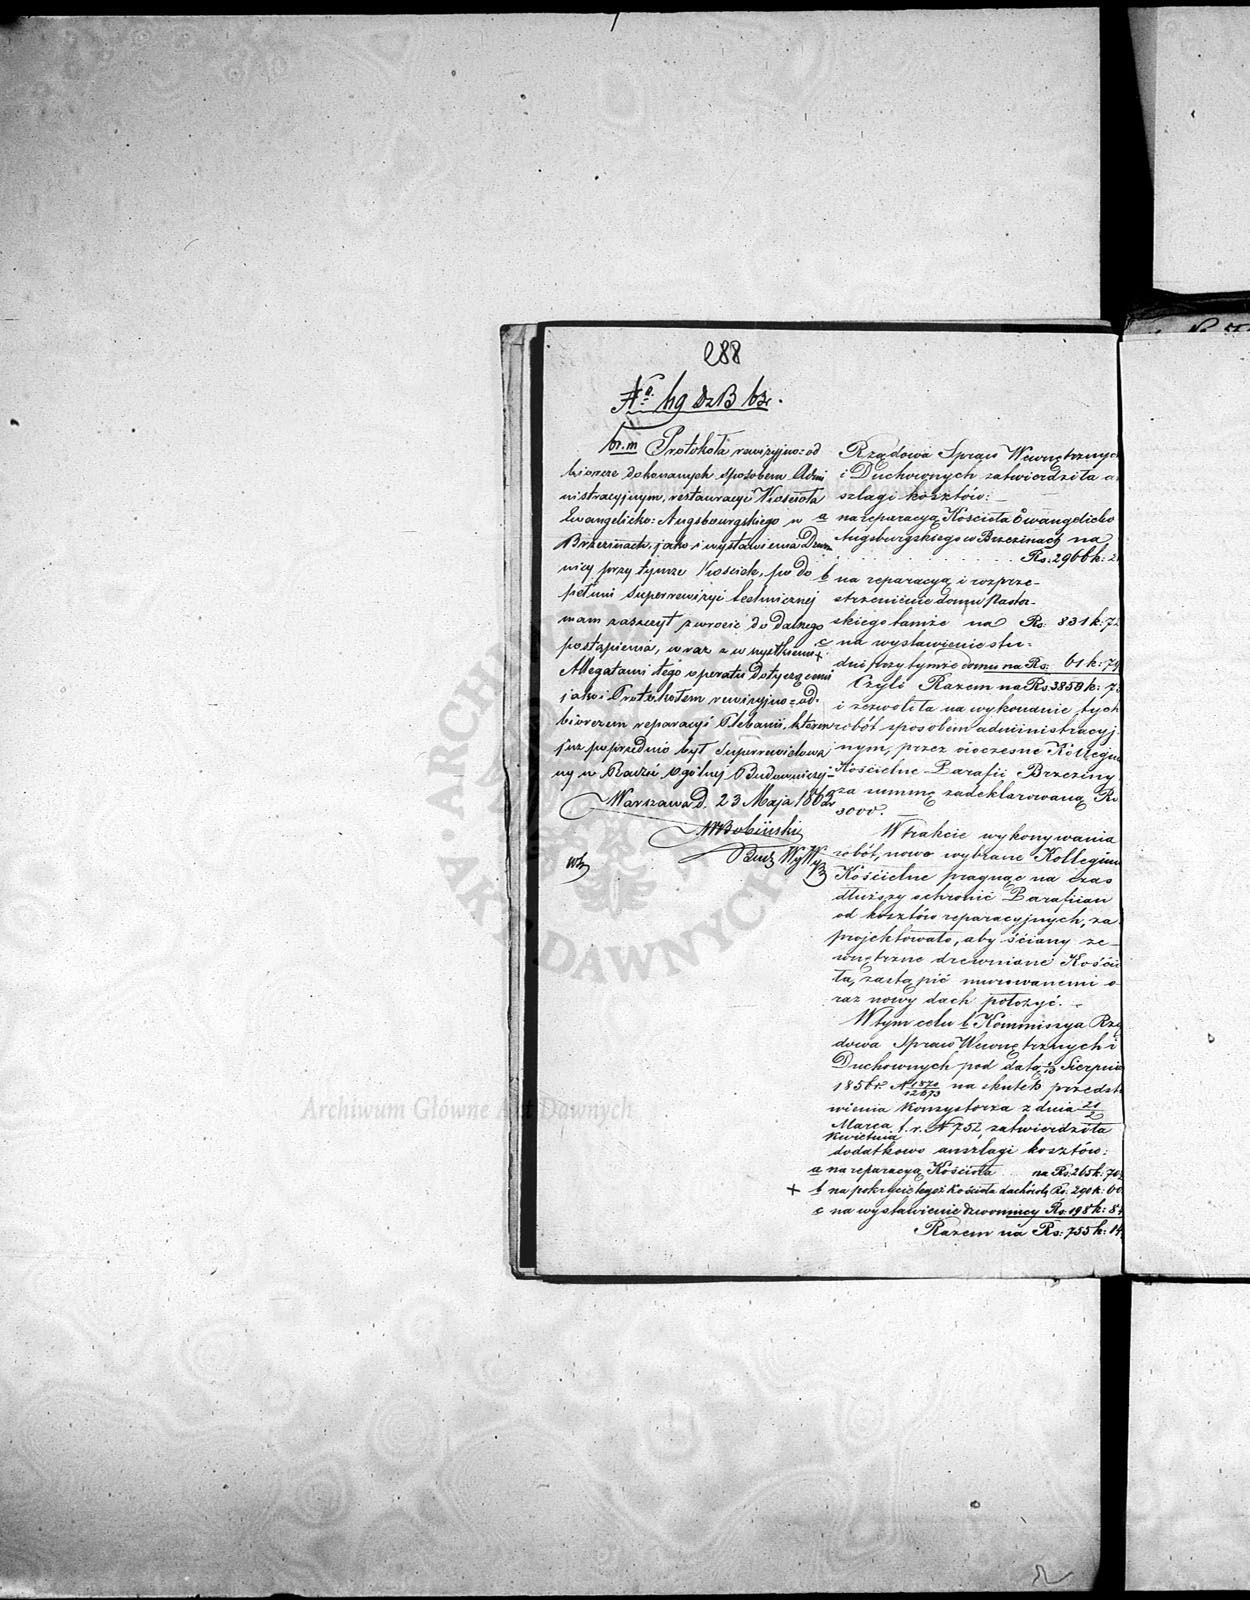 288
br. m Protokóła rewizyjno=od
biorcze dokonanych sposobem Admi
nistracyjnym, restauracyi Kościoła
Ewangelicko=Augsbourgskiego w
Brzezinach, jako i wystawienia Dzwo
nicy przy tymże Kościele, po do
pełnieni Superrewizyi technicznej
mam zaszczyt zwrócić do dalszego
postąpienia, wraz z wszystkiemi
Allegatami tego operatu dotyczącemi
jako i Protokołem rewizyjno=od=
biorczem reparacyi Plebanii, która
już poprzednio był Superrewidowa
ny w Radzie Ogólnej Budowniczej
Warszawa D. 23 Maja 186
Bud.
Rządowa Spraw Wewnętrznych
i Duchownych zatwierdziła an
szlagi kosztów:
a na reparacyą Kościoła Ewangelicko
Augsburgskiego w Brzezinach na
Rs: 2966 k: 2
b na reparacyą i rozprze-
strzenienie domu Pastor-
skiego tamże na Rs: 831 k: 7
c na wystawienie stu-
dni przy tymże domu na Rs: 61 k: 79
Czyli Razem na Rs. 3859 k: 7
i zezwoliła na wykonanie tych
robót sposobem administracyj
nym, przez ówczesne Kollegium
Kościelne Parafii Brzeziny
za summę zadeklarowaną Rs
3000. —
W trakcie wykonywania
robót, nowo wybrane Kollegium
Kościelne pragnąc na czas
dłuższy ochronić Parafiian
od kosztów reparacyjnych, za
projektowało, aby ściany ze-
wnętrzne drewniane Kościo
ła, zastąpić murowanemi o
raz nowy dach położyć. –
W tym celu b Kommissya Rzą
dowa Spraw Wewnętrznych i
Duchownych pod datą Sierpnia
1856 r. N na skutek przedsta
wienia Konsystorza z dnia
Marca
Kwietnia t. r. N 752, zatwierdziła
dodatkowo anszlagi kosztów:
a na reparacyą Kościoła na Rs. 265 k: 70
+ b na pokrycie tegoż Kościoła dachówką Rs. 290 k: 60
c na wystawienie dzwonnicy Rs. 198 k: 84
Razem na Rs: 755 k: 14
Archiwum Główne Akt Dawnych
ARCHIWUM GŁÓWNE AKT DAWNYCH